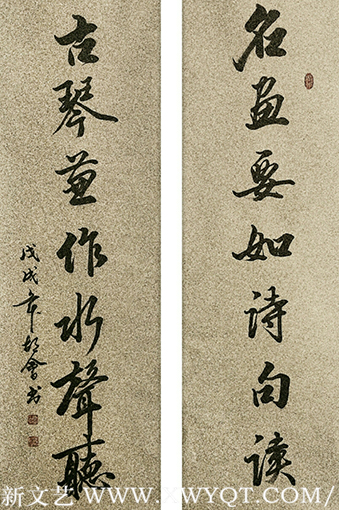 名画要如诗句读
古琴兼作水聲聽
戊戌年
新文艺 WWW.XWYQT.COM/